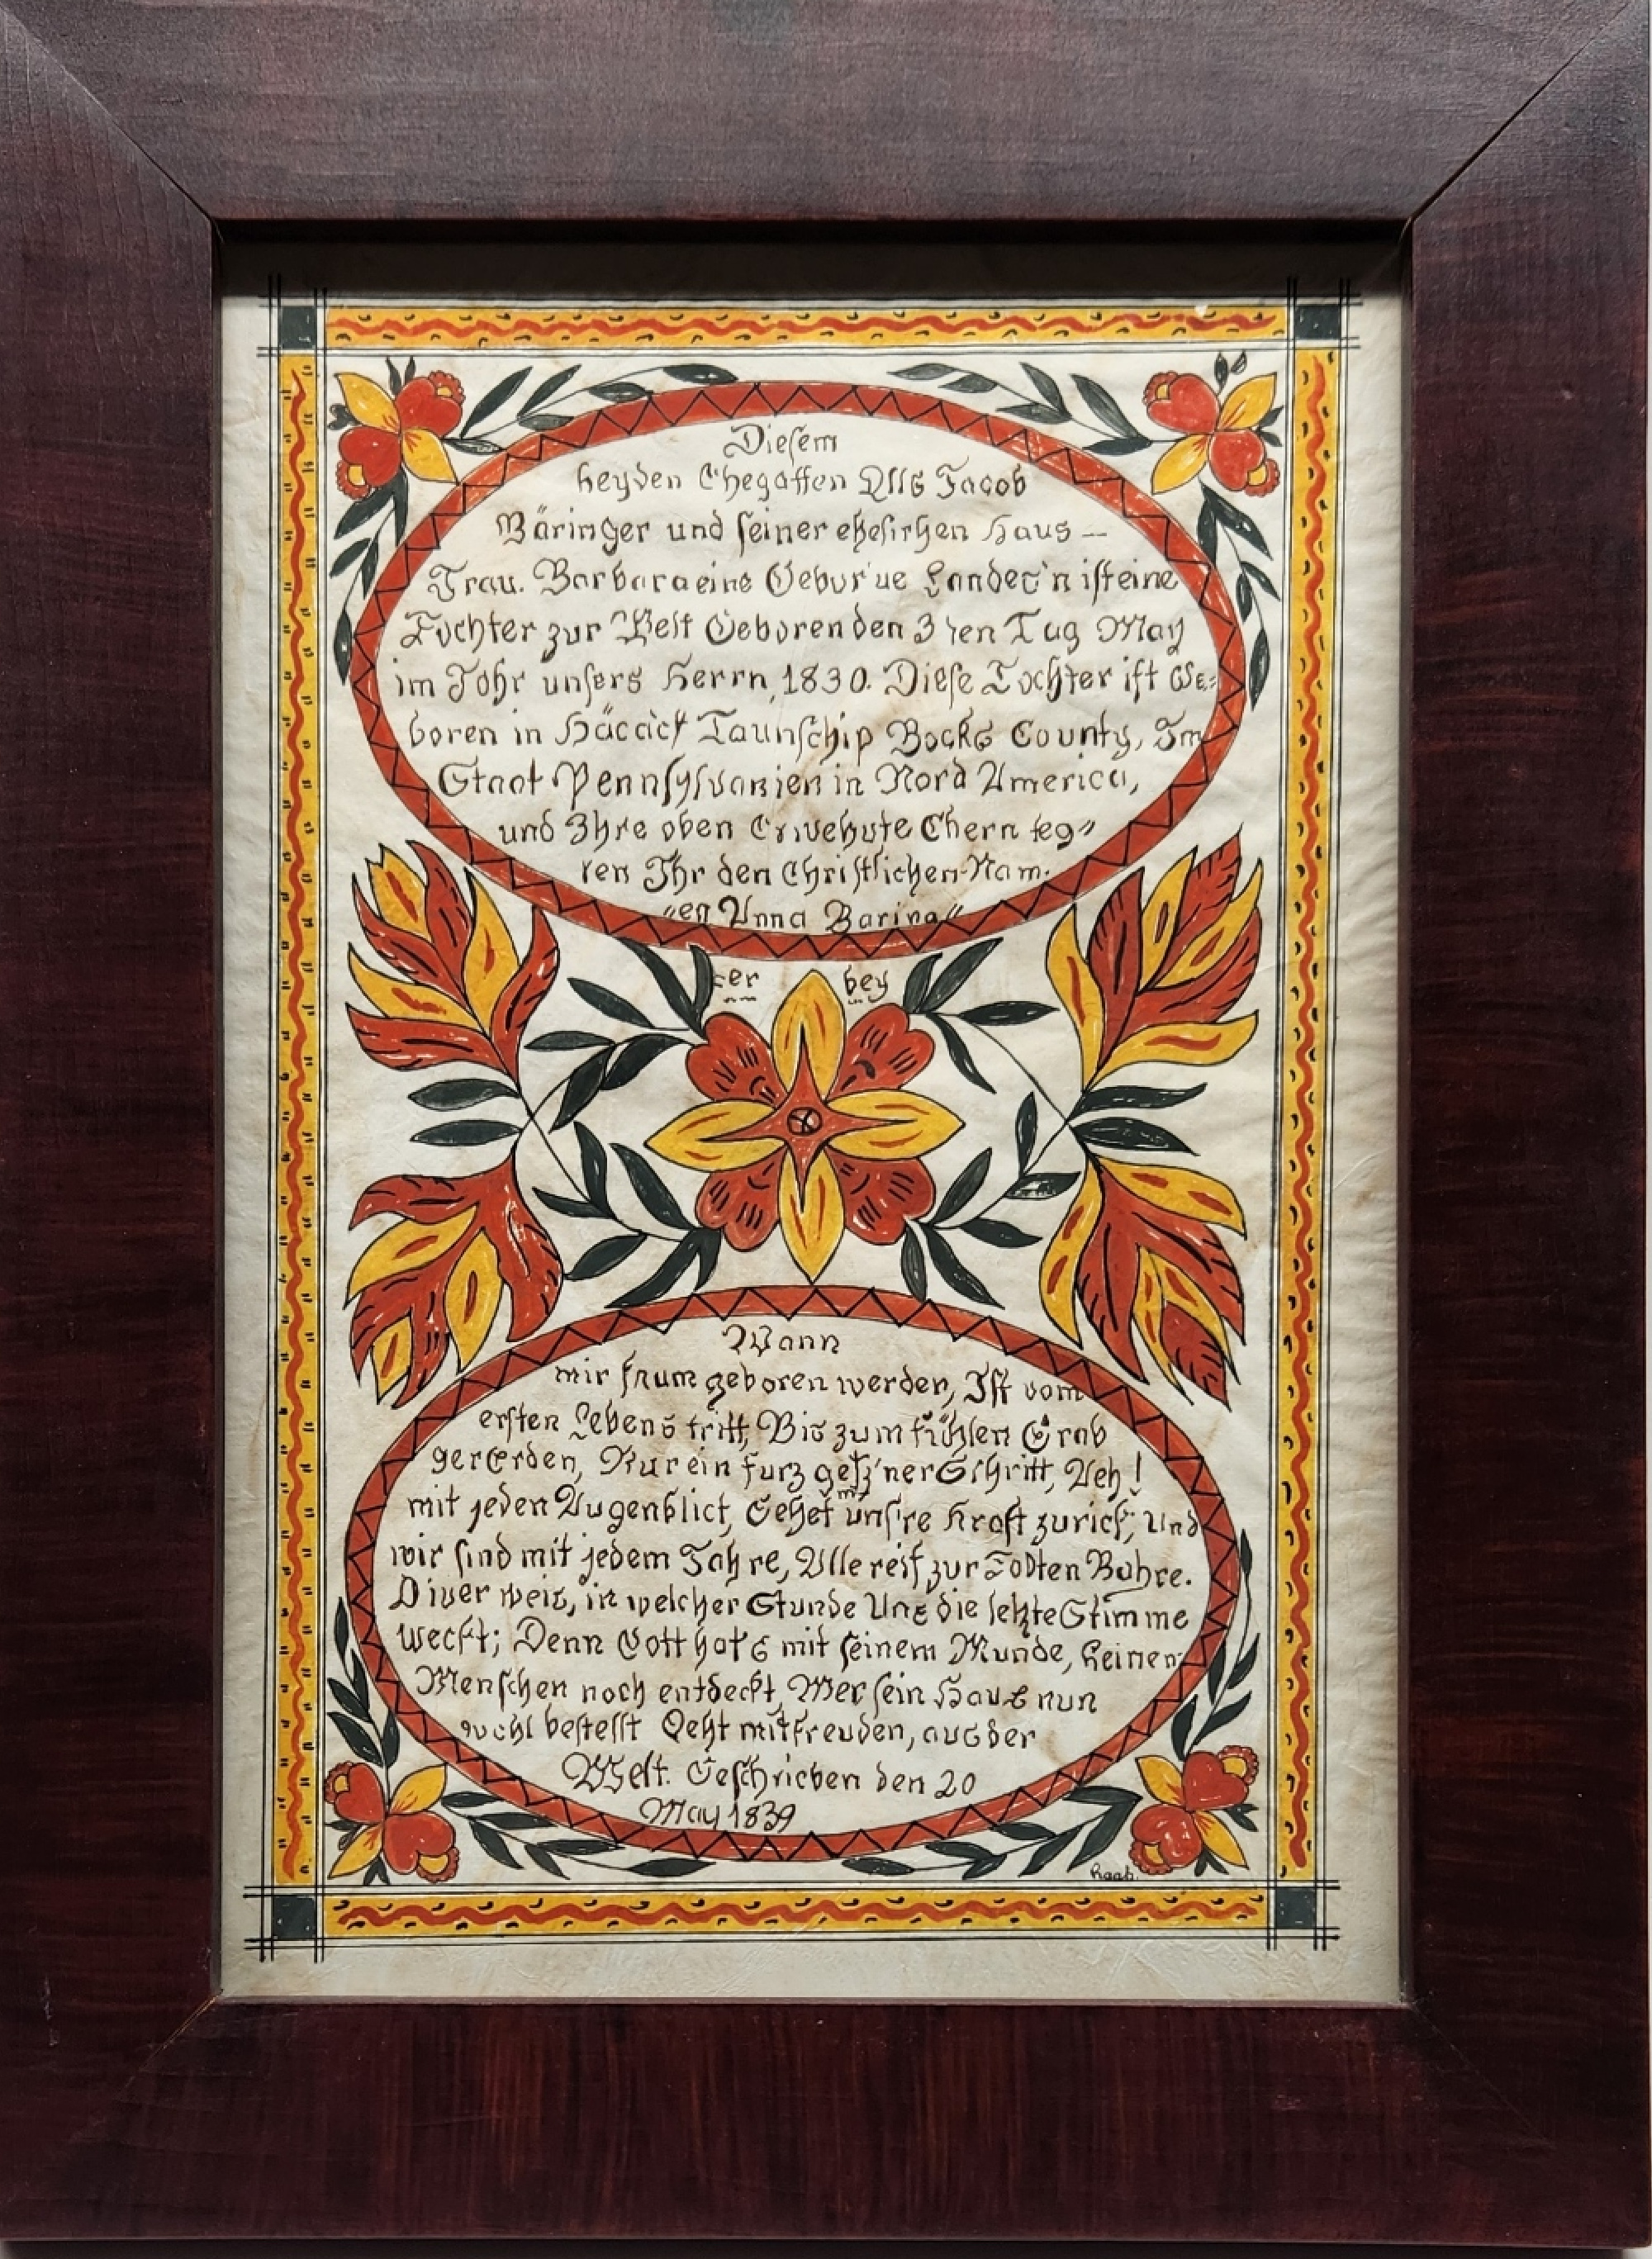 Diesem
beyden Ehegatten Als Jacob
Bäringer und seiner ehelichen Haus-
Frau. Barbara eine Gebor'ne Landes'n ist eine
Tochter zur Welt Geboren den 3ten Tag May
im Jahr unsers Herrn, 1830. Diese Tochter ist Ge=
boren in Häcack Taunschip Bocks County, Im
Staat Pennsylvanien in Nord America,
und Ihre oben Erwehnte Eltern leg"
ten Ihr den Christlichen Nam.
"en Anna Baring"
=er bey
Wann
mir kaum geboren werden, Ist vom
ersten Lebens tritt, Bis zum kühlen Grab
der Erden, Nur ein kurz gesz'ner Schritt, Ach!
mit jeden Augenblick, Gehet uns're Kraft zurick; Und
wir sind mit jedem Jahre, Alle reif zur Todten Bahre.
Und wer weis, in welcher Stunde Uns die letzte Stimme
weckt; Denn Gott hat's mit seinem Munde, Keinen
Menschen noch entdeckt, Wer sein Haus nun
wohl bestellt Geht mit freuden, aus der
Welt. Geschrieben den 20
May 1839
Raab.